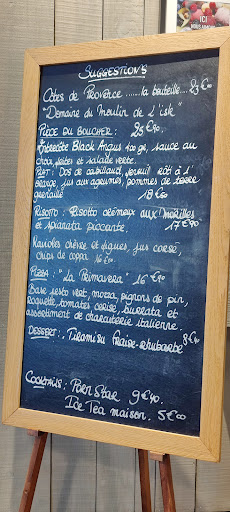 ICI
SUGGESTIONS
Côtes de Provence ......la bouteille...
"Domaine du Moulin de l'isle"
PIÈCE DU BOUCHER:
Entrecôte Black Angus 400 gr, sauce au
choix, frites et salade verte.
PLAT: Dos de cabillaud, fenouil rôti à l'
orange, jus aux agrumes, pommes de terre
grenaille
RISOTTO: Risotto crémeux aux Morilles
et spianata piccante 17€90
Ravioles chèvre et figues, jus corsé
chips de coppa 16€90
PIZZA: "La Primavera" 16€90
Base pesto vert, mozza, pignons de pin,
roquette, tomates cerise, burrata et
assortiment de charcuterie italienne.
DESSERT: Tiramisu fraise-rhubarbe 8€90
COCKTAILS: Porn Star 9€90
Ice Tea maison. 5€00